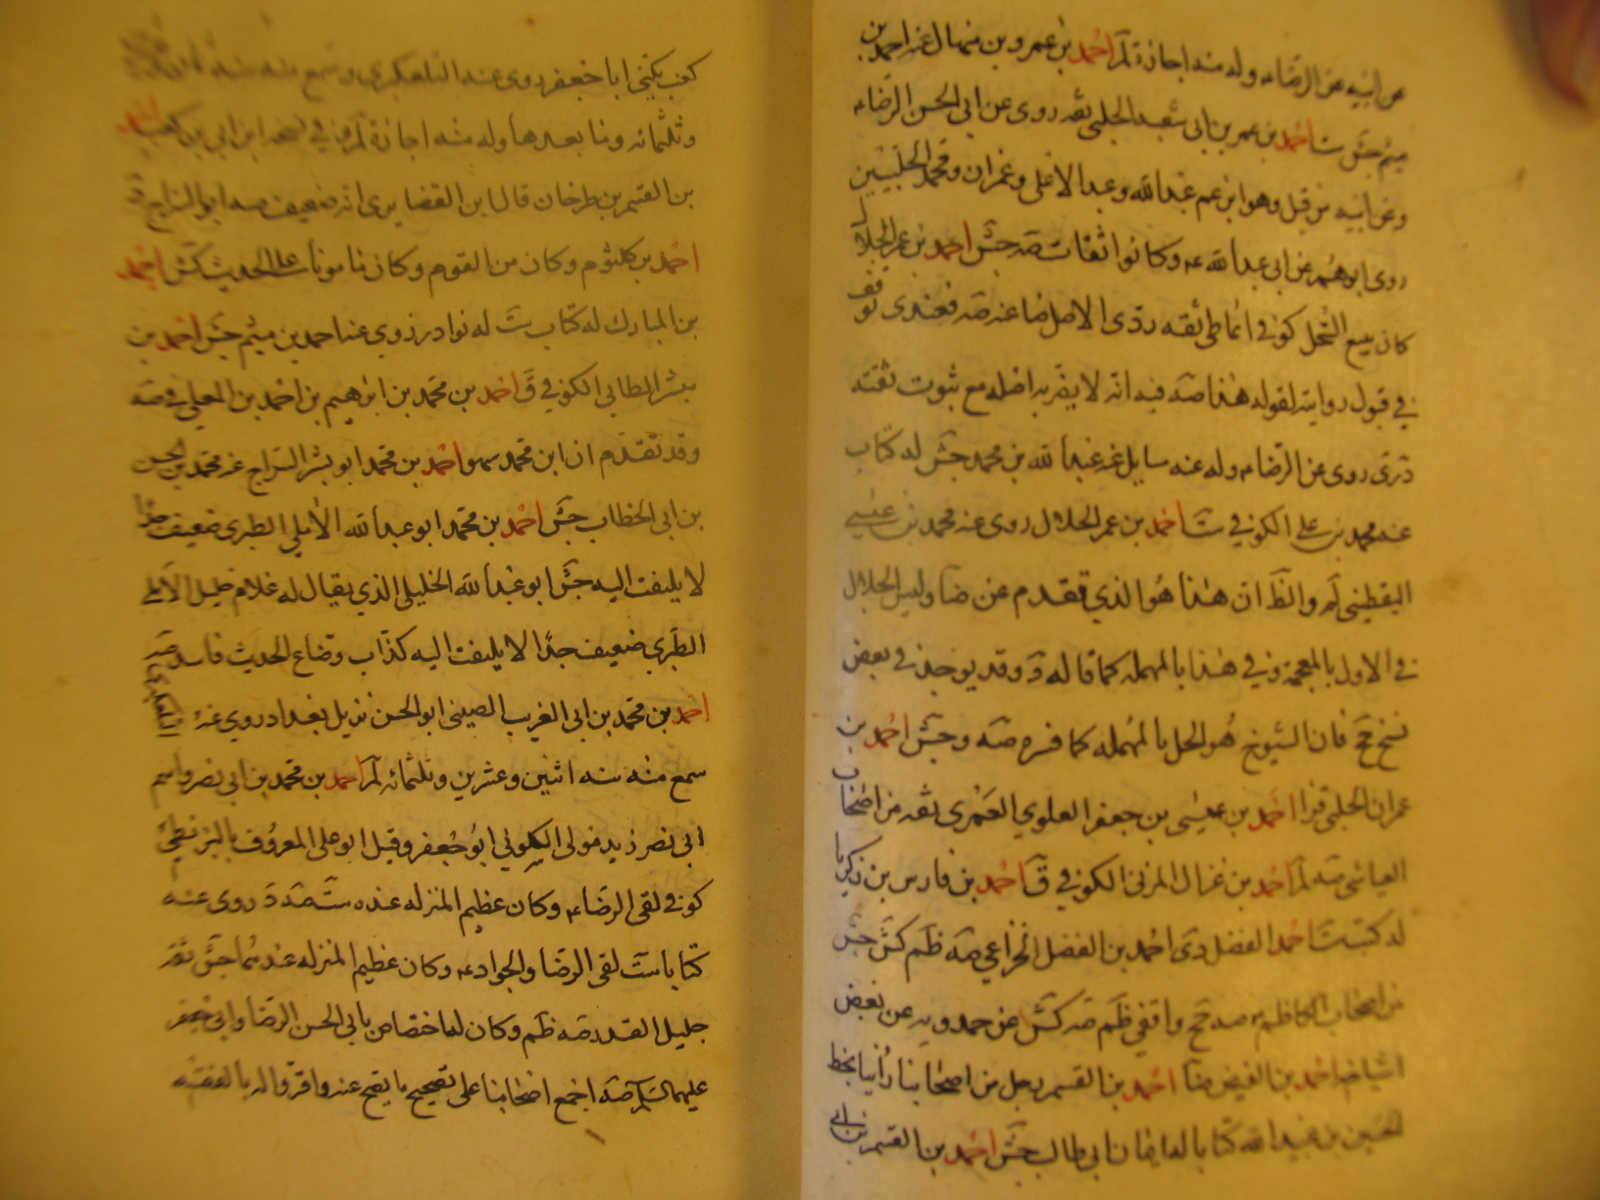 عن ابيه عن الرضاء وله منه اجازة لم احمد بن عمرو بن منهال عنه احمد بن
ميثم جش ست احمد بن عمر بن ابى شعبه الحلبى ثقه روى عن ابى الحسن الرضاء
وعن ابيه من قبل وهو ابن عم عبد الله وعبد الاعلى وعمران ومحمد الحلبيين
روى ابوهم عن ابى عبد الله ع وكانوا ثقات صه جش احمد بن عمر الحلال
كان يبيع الحل كوفى انماطى ثقه ردى الاصل ضا عنه صه فعندى توقف
فى قبول روايته لقوله هذا صه فيه انه لا يضر رداءة اصله مع ثبوت ثقته
روى عن الرضاء وله عنه مسايل عنه عبد الله بن محمد جش له كتاب
عنه محمد بن على الكوفى ست احمد بن عمر الحلال روى عنه محمد بن عيسى
اليقطينى لم والظ ان هذا هو الذي تقدم عن ضا وليس الحلال
فى الاول بالمعجمة وفى هذا بالمهمله كما قاله د وقد يوجد فى بعض
نسخ جخ فان الشيوخ هو الحل بالمهمله كما فسره صه وجش احمد بن
عمران الحلبى قر احمد بن عيسى بن جعفر العلوي العمرى ثقه من اصحاب
العياشى صه لم احمد بن غزال المزنى الكوفى ق احمد بن فارس بن زكريا
له كتب ست احمد الفضل دى احمد بن الفضل الخزاعي صه ظم كش جش
من اصحاب الكاظم ع صه جخ واقفى ظم صه كش عن حمدويه عن بعض
اشياخه احمد بن الفيض ضا احمد بن القسم رجل من اصحابنا رأينا بخط
الحسين بن عبيد الله كتابا له ايمان ابى طالب جش احمد بن القسم بن ابى
كعب يكنى ابا جعفر روى عنه التلعكبرى وسمع منه سنه ثمان
وثلثمائه وما بعدها وله منه اجازة لم وفى نسخه ابن ابى بن كعب احمد
بن القسم بن طرخان قال ابن الغضايرى انه ضعيف صه ابو السراج
احمد بن كلثوم وكان من القوم وكان مامونا على الحديث كش احمد
بن المبارك له كتاب ست له نوادر روي عنه احمد بن ميثم جش احمد بن
بشر الطايى الكوفي ق احمد بن محمد بن ابرهيم بن احمد بن المعلى فى صه
وقد تقدم ان ابن محمد سهو احمد بن محمد ابو بشر السراج عنه محمد بن الحسن
بن ابى الخطاب جش احمد بن محمد ابو عبد الله الاملى الطبرى ضعيف جدا
لا يلتفت اليه جش ابو عبد الله الخليلي الذي يقال له غلام خليل الاملى
الطبرى ضعيف جدا لا يلتفت اليه كذاب وضاع للحديث فاسد صه
احمد بن محمد بن ابى الغريب الصينى ابو الحسن نزيل بغداد روي عنه التلعكبرى
سمع منه سنه اثنين وعشرين وثلثمائه لم احمد بن محمد بن ابى نصر واسم
ابى نصر زيد مولى السكونى ابو جعفر وقيل ابو على المعروف بالبزنطى
كوفى لقى الرضاء وكان عظيم المنزله عنده ست صه د روى عنه
كتابا ست لقى الرضا والجواد ع وكان عظيم المنزله عندهما جش ثقه
جليل القدر صه ظم وكان له اختصاص بابى الحسن الرضا وابى جعفر
عليهما السلم صه اجمع اصحابنا على تصحيح ما يصح عنه واقروا له بالفقه